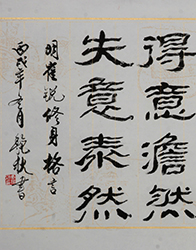 得意澹然
失意泰然
明崔铣修身格言
丙戌年
月
书